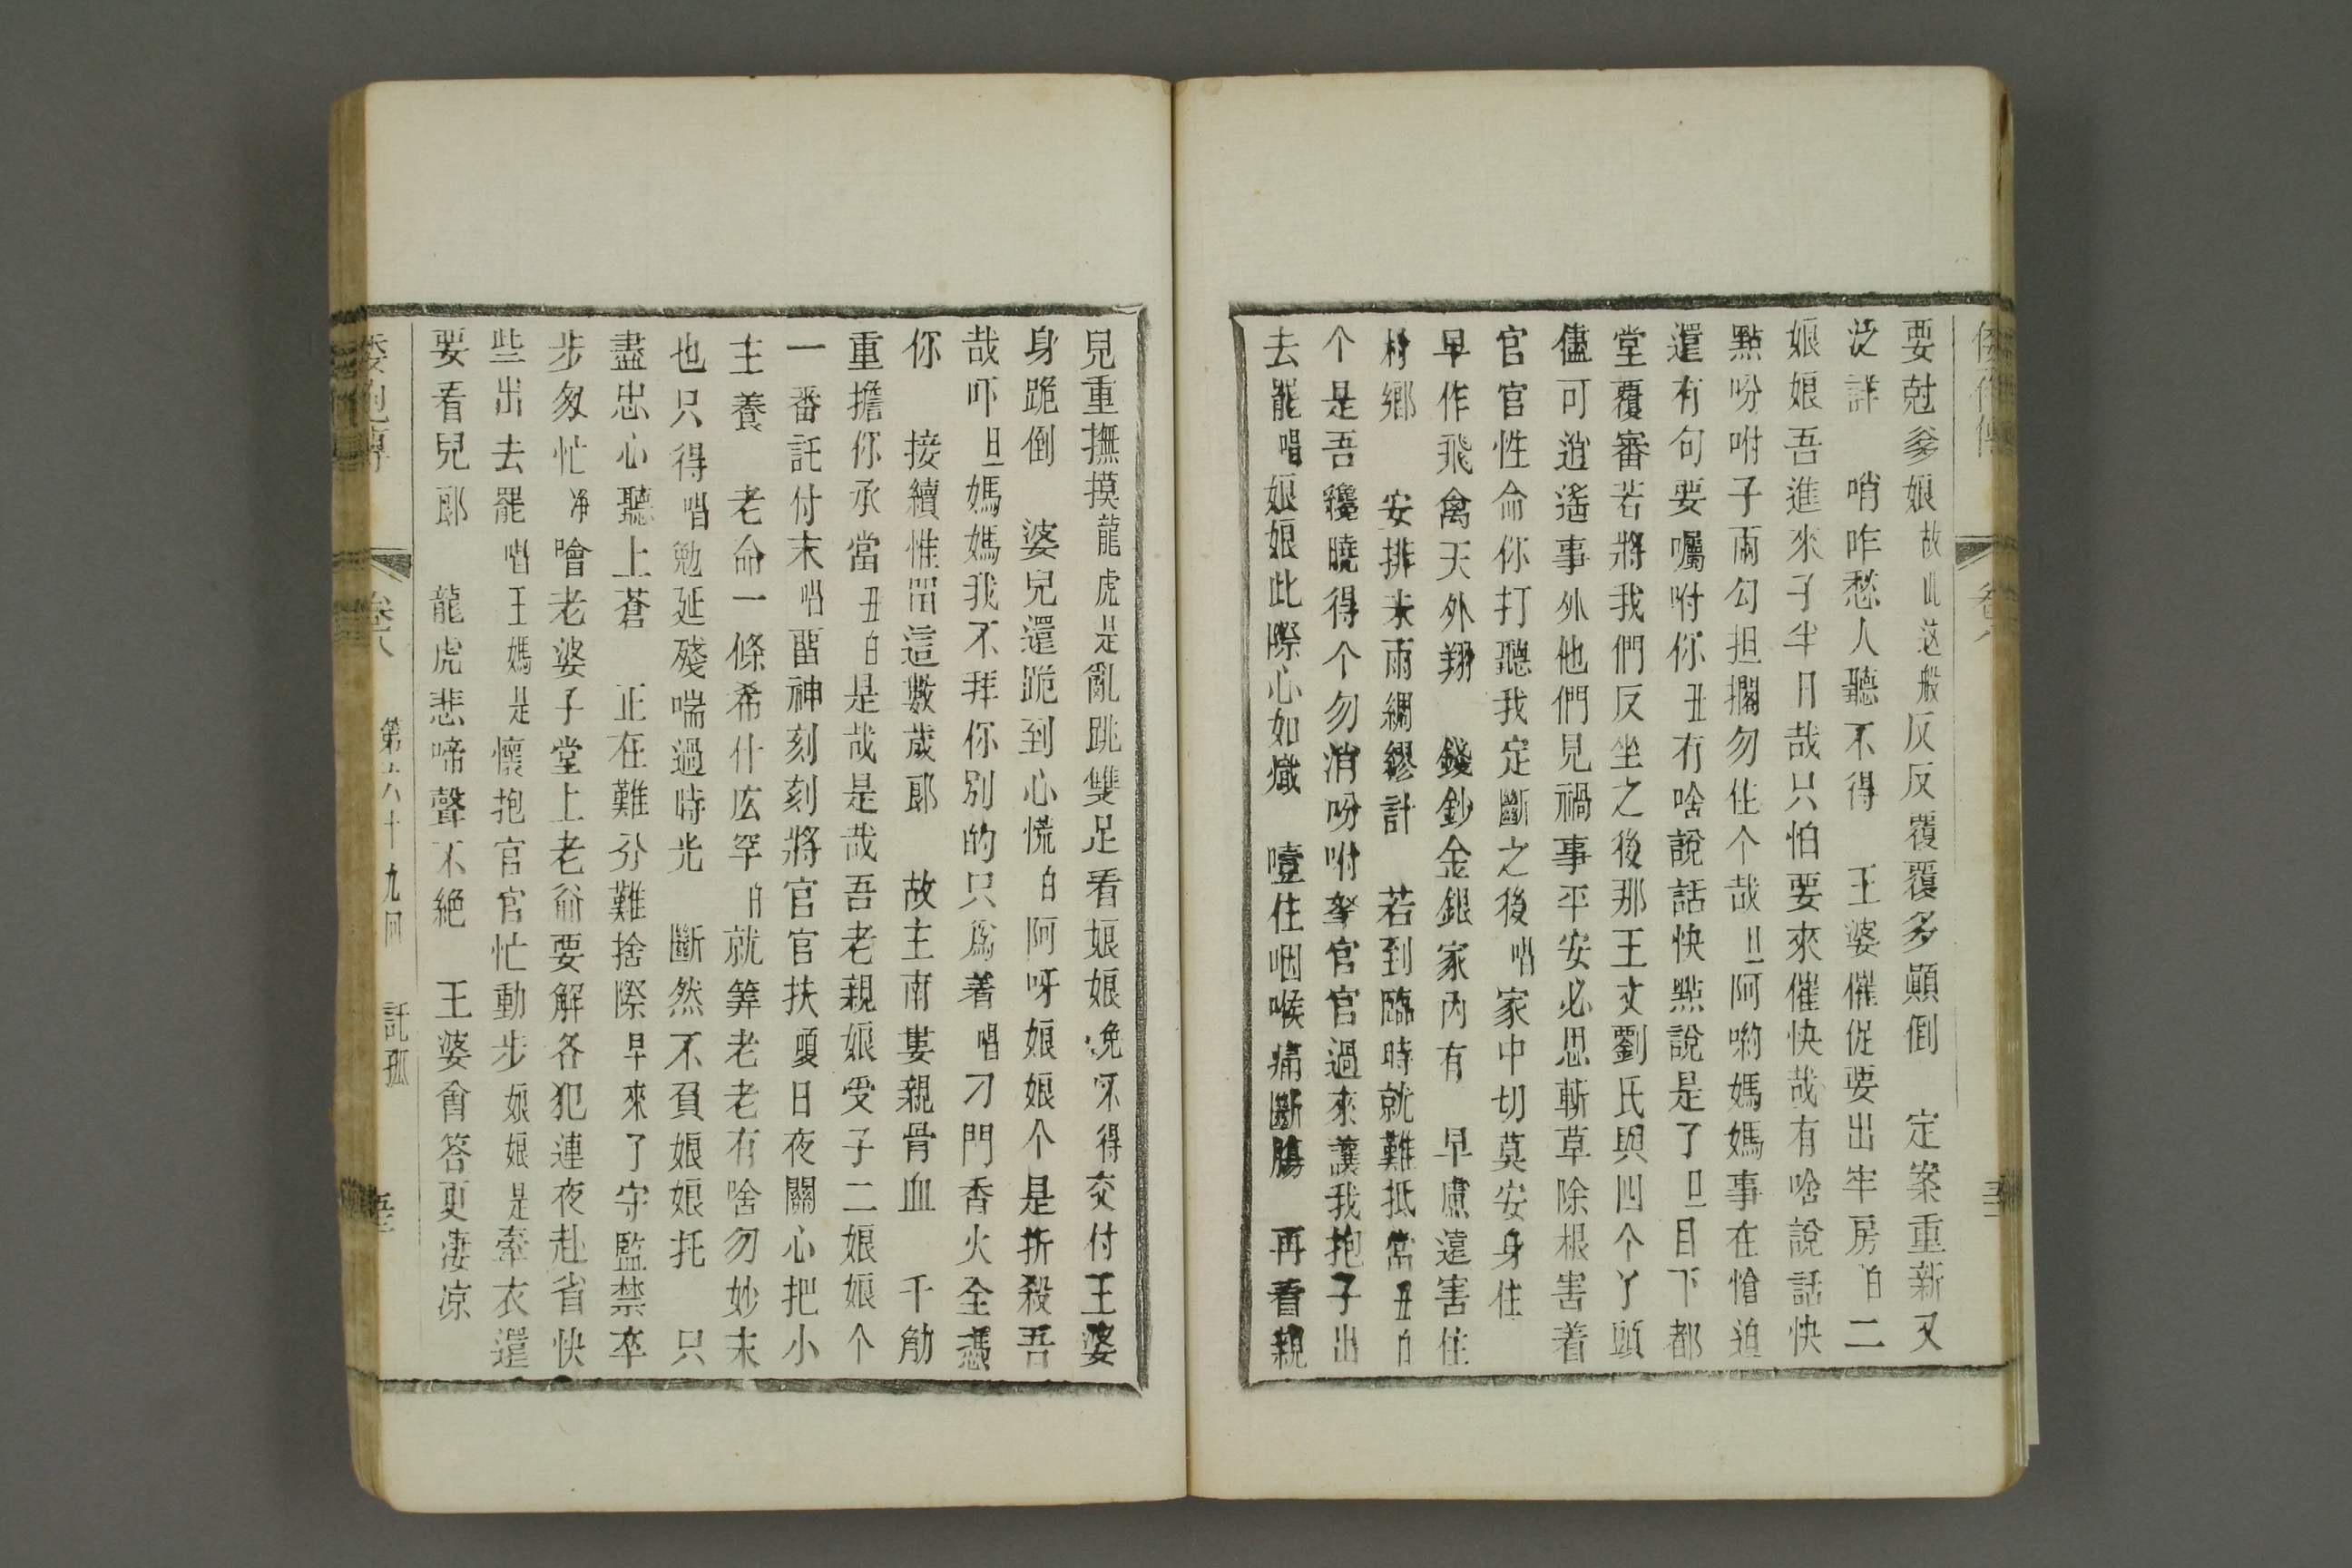 倭袍傳
卷六
要尅爹娘故此這般反反覆覆多顛倒　定案重新又
泛詳　哨咋愁人聽不得　王婆催促要出牢房白二
娘娘吾進來子半日哉只怕要來催快哉有啥說話快
點吩咐子兩勾担擱勿住个哉旦阿喲媽媽事在愴迫
還有句要囑咐你丑有啥說話快點說是了旦目下都
堂覆審若將我們反坐之後那王文劉氏與四个丫頭
儘可逍遙事外他們見禍事平安必思斬草除根害着
官官性命你打聽我定斷之後唱家中切莫安身住
早作飛禽天外翔　錢鈔金銀家內有　早慮遠害住
村鄉　安排未雨綢繆計　若到臨時就難抵當丑白
个是吾纔曉得个勿消吩咐拏官官過來讓我抱子出
去罷唱娘娘此際心如熾　噎住咽喉痛斷腸　再看親
兒重撫摸龍虎是亂跳雙足看娘娘免不得交付王婆
身跪倒　婆兒還跪到心慌白阿呀娘娘个是折殺吾
哉吓旦媽媽我不拜你別的只爲着唱刁門香火全憑
你　接續惟留這數歲郎　故主南婁親骨血　千觔
重擔你承當丑白是哉是哉吾老親娘受子二娘娘个
一番託付末唱留神刻刻將官官扶頭日夜關心把小
主養　老命一條希什広罕白就算老老有啥勿妙末
也只得唱勉延殘喘過時光　斷然不負娘娘托　只
盡忠心聽上蒼　正在難分難捨際早來了守監禁卒
步匆忙净噲老婆子堂上老爺要解各犯連夜赴省快
些出去罷唱王媽是懷抱官官忙動步娘娘是牽衣還
要看兒郎　龍虎悲啼聲不絕　王婆會答更凄凉
倭袍傳
卷六　第六十九囘　託孤